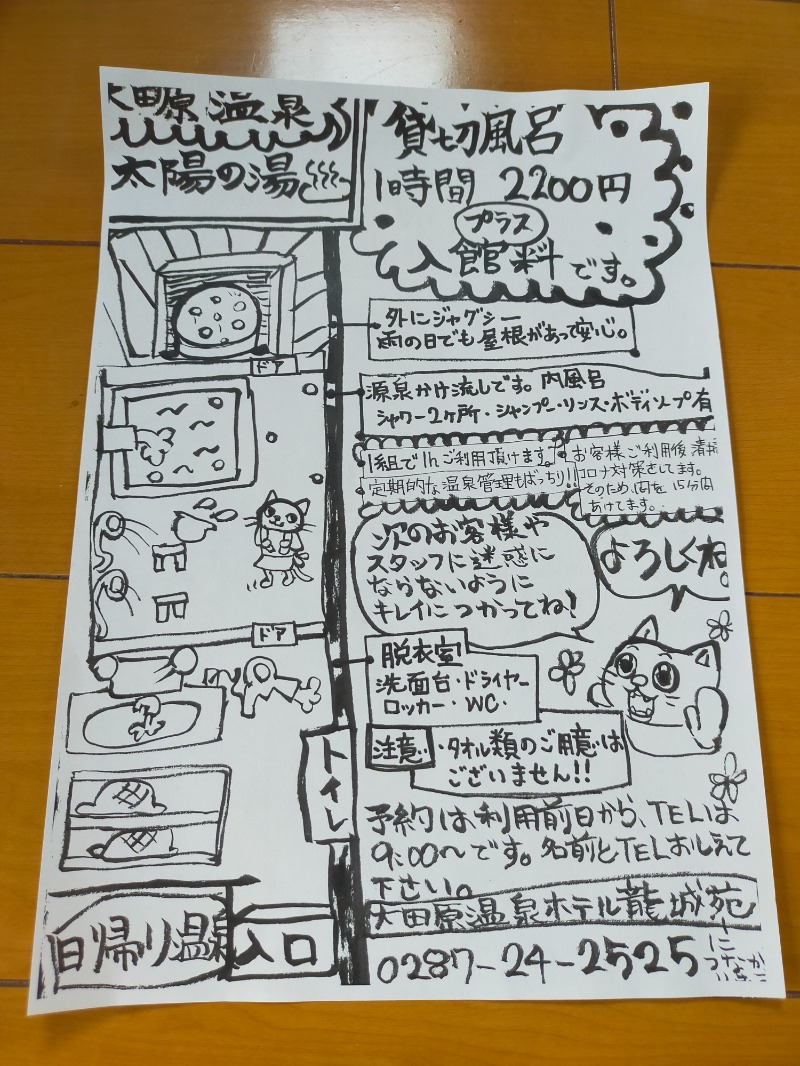 大田原温泉
太陽の湯
貸切風呂
1時間 2200円
プラス
入館料です。
外にジャグシー
雨の日でも屋根があって安心。
ドア
源泉かけ流しです。内風呂
シャワー2ヶ所・シャンプー・リンス・ボディソープ有
1組で1hご利用頂けます。
定期的な温泉管理もばっちり!!
お客様ご利用後清掃
コロナ対策さしてます。
そのため、間を15分内
あけてます。
次のお客様や
スタッフに迷惑に
ならないように
キレイにつかってね!
よろしくね。
ドア
脱衣室
洗面台・ドライヤー
ロッカー・WC・
注意・タオル類のご用意は
ございません!!
トイレ
予約は利用前日から、TELは
9:00〜です。名前とTELおしえて
下さい。
大田原温泉ホテル龍城苑
日帰り温泉
入口
0287-24-2525